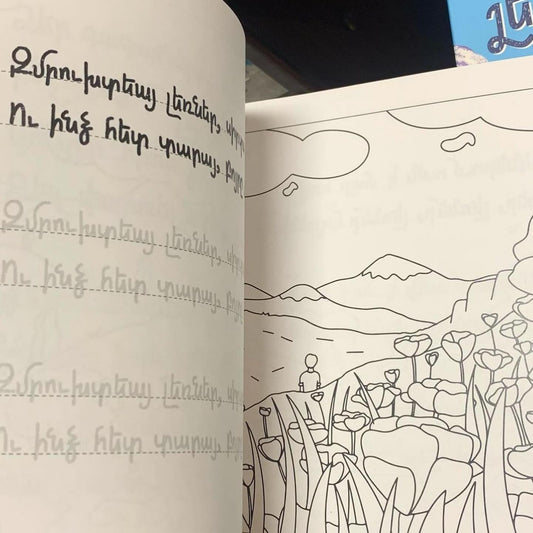 Զմրուխտեայ լեռներ,
Ու ինձ հետ տարայ,
Զմրուխտեայ լեռներ,
Ու ինձ հետ տարայ,
Զմրուխտեայ լեռներ,
Ու ինձ հետ տարայ,